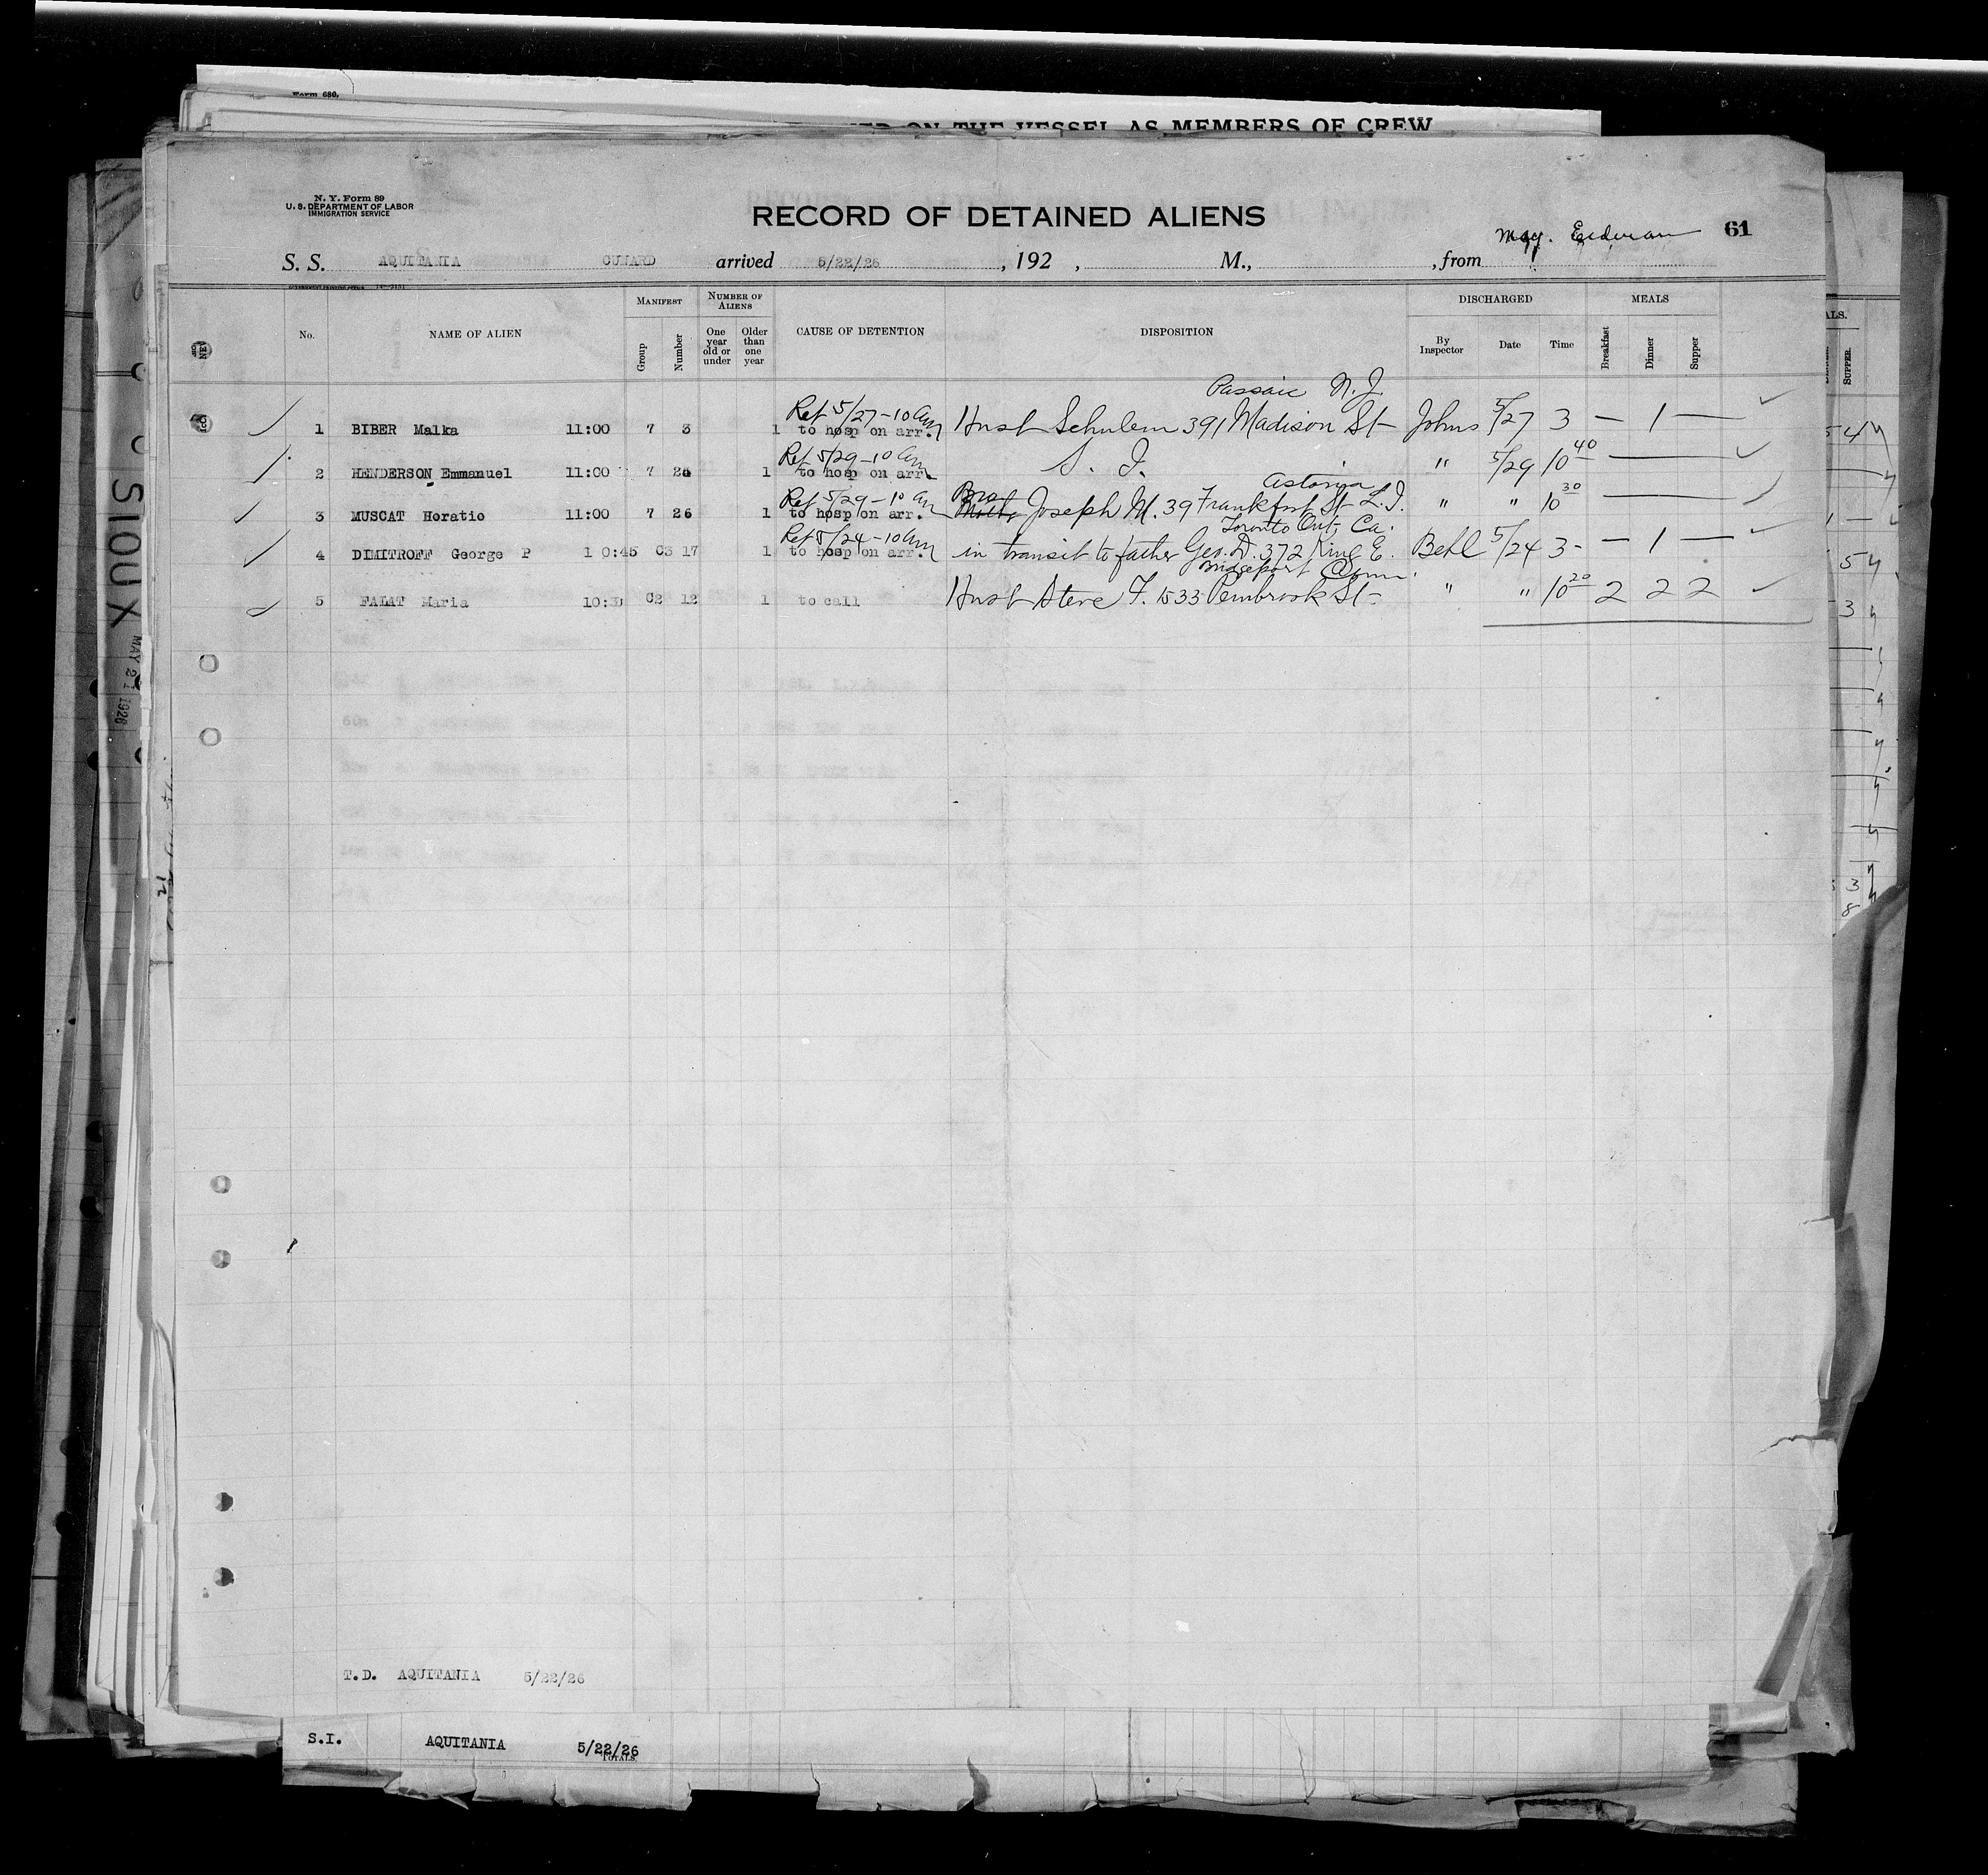 Form 680.
ON THE VESSEL AS MEMBERS OF CREW
N. Y. Form 89
U. S. DEPARTMENT OF LABOR
IMMIGRATION SERVICE
RECORD OF DETAINED ALIENS
61
S. S. AQUITANIA CUNARD arrived 5/22/26, 192 , M., , from
MANIFEST NUMBER OF ALIENS DISCHARGED MEALS
No. NAME OF ALIEN Group Number One year old or under Older than one year CAUSE OF DETENTION DISPOSITION By Inspector Date Time Breakfast Dinner Supper
Passaic N.J.
Ret 5/27-10 am
1 BIBER Malka 11:00 7 3 1 to hosp on arr. Husb Schulem 391 Madison St- Johns 5/27 3 — 1 —
Ret 5/29-10 am
2 HENDERSON Emmanuel 11:00 7 1 to hosp on arr. S. I. " 5/29 10 40
Astoria
Ret 5/29-10 am
3 MUSCAT Horatio 11:00 7 26 1 to hosp on arr. Bro Joseph M. 39 Frankfort St L.I. " " 10 30
Toronto Ont, Ca.
Ret 5/24-10 am
4 DIMITROFF George P 10:45 C3 17 1 to hosp on arr. in transit to father Geo. D. 372 King E. Behl 5/24 3- — 1 —
Bridgeport Conn.
5 FALAT Maria 10:30 C2 12 1 to call Husb Steve F. 1533 Pembrook St- " " 10 20 2 2 2
SIOUX
MAY 21 1926
SUPPER.
T.D. AQUITANIA 5/22/26
S.I. AQUITANIA 5/22/26
TOTALS